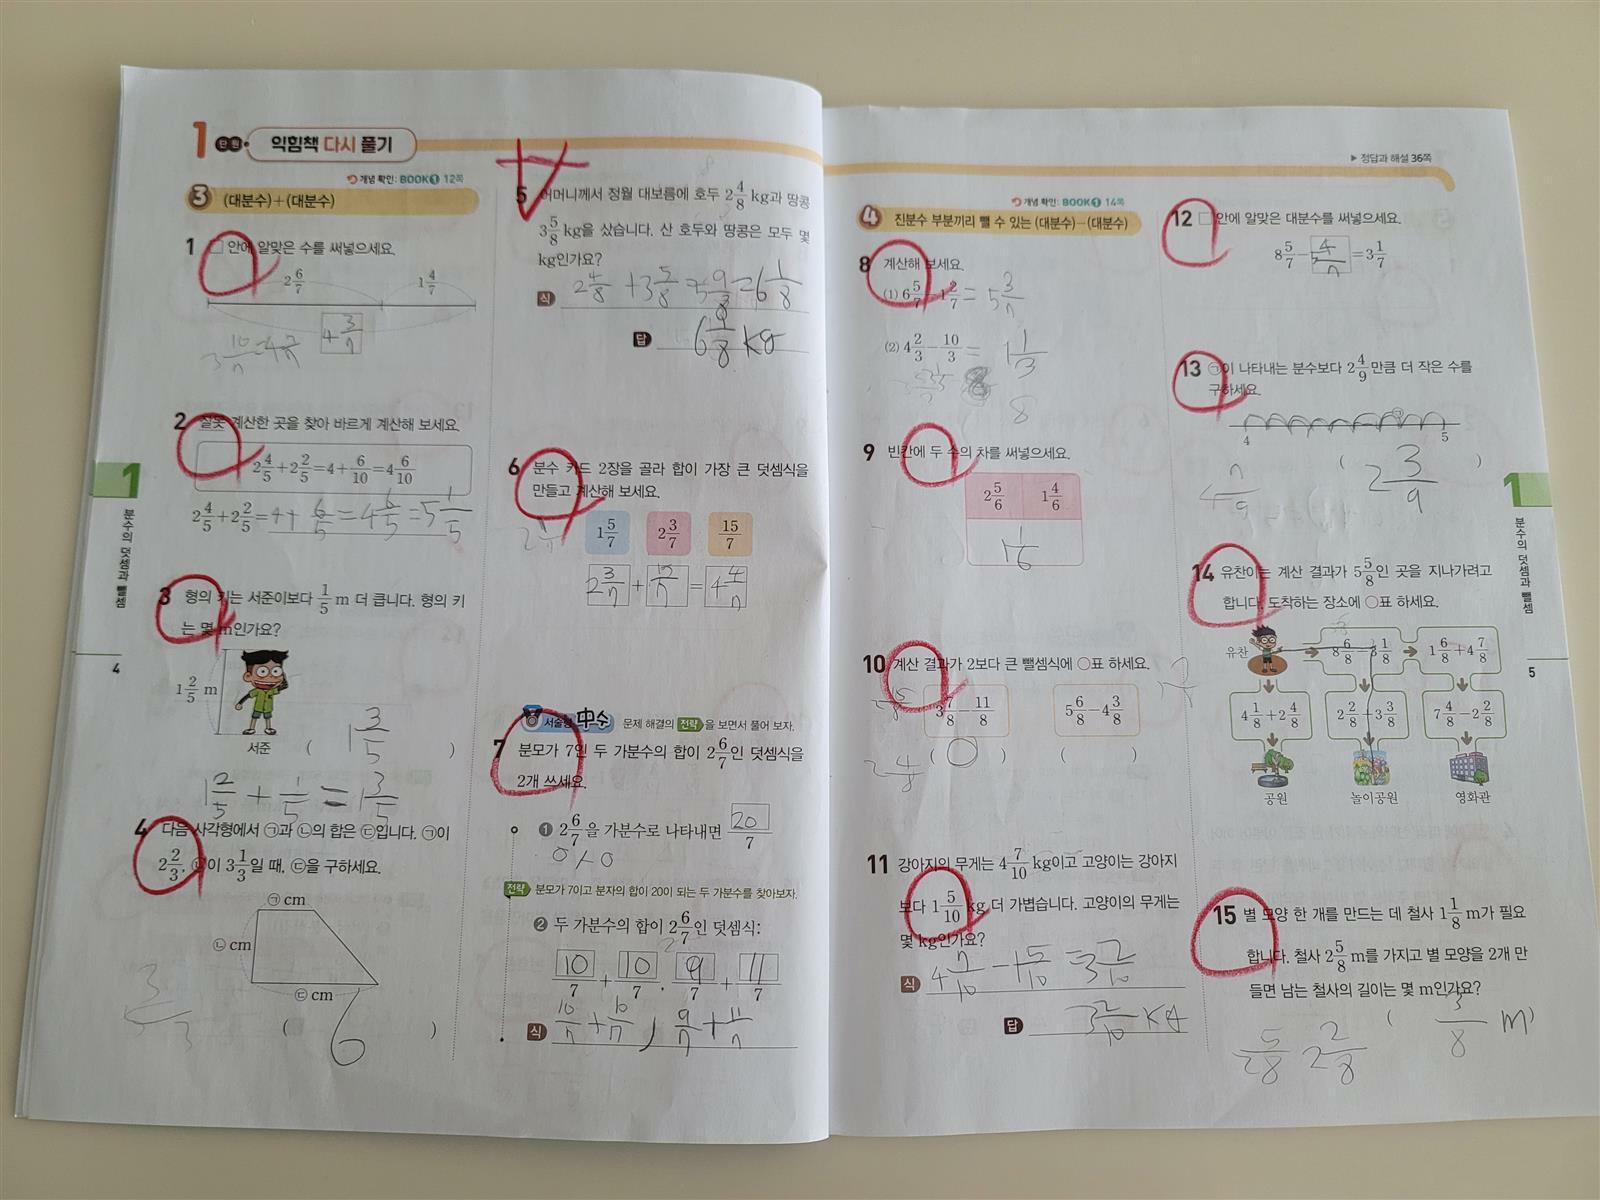 1 단원 익힘책 다시 풀기
개념 확인: BOOK1 12쪽
3 (대분수)+(대분수)
1 □ 안에 알맞은 수를 써넣으세요.
2 6/7 1 4/7
4 3/7
3 10/7
2 잘못 계산한 곳을 찾아 바르게 계산해 보세요.
2 4/5+2 2/5=4+6/10=4 6/10
2 4/5+2 2/5=4+6/5=4 6/5=5 1/5
3 형의 키는 서준이보다 1/5 m 더 큽니다. 형의 키
는 몇 m인가요?
1 2/5 m
서준
( 1 3/5 )
1 2/5 + 1/5 = 1 3/5
4 다음 사각형에서 ㉠과 ㉡의 합은 ㉢입니다. ㉠이
2 2/3, ㉡이 3 1/3일 때, ㉢을 구하세요.
㉠ cm
㉡ cm
㉢ cm
( 6 )
5 어머니께서 정월 대보름에 호두 2 4/8 kg과 땅콩
3 5/8 kg을 샀습니다. 산 호두와 땅콩은 모두 몇
kg인가요?
식 2 4/8 + 3 5/8 = 5 9/8 = 6 1/8
답 6 1/8 kg
6 분수 카드 2장을 골라 합이 가장 큰 덧셈식을
만들고 계산해 보세요.
1 5/7 2 3/7 15/7
2 3/7 + 15/7 = 4 4/7
서술형 中수 문제 해결의 전략 을 보면서 풀어 보자.
7 분모가 7인 두 가분수의 합이 2 6/7인 덧셈식을
2개 쓰세요.
1 2 6/7을 가분수로 나타내면 20/7
전략 분모가 7이고 분자의 합이 20이 되는 두 가분수를 찾아보자.
2 두 가분수의 합이 2 6/7인 덧셈식:
10/7 + 10/7, 9/7 + 11/7
식 10/7 + 10/7, 9/7 + 11/7
1
분수의 덧셈과 뺄셈
4
▶ 정답과 해설 36쪽
개념 확인: BOOK1 14쪽
4 진분수 부분끼리 뺄 수 있는 (대분수)-(대분수)
8 계산해 보세요.
(1) 6 5/7-1 2/7 = 5 3/7
(2) 4 2/3-10/3 = 1 1/3
8
9 빈칸에 두 수의 차를 써넣으세요.
2 5/6 1 4/6
1 1/6
10 계산 결과가 2보다 큰 뺄셈식에 ○표 하세요.
3 7/8-11/8 5 6/8-4 3/8
( ○ ) ( )
2 4/8
11 강아지의 무게는 4 7/10 kg이고 고양이는 강아지
보다 1 5/10 kg 더 가볍습니다. 고양이의 무게는
몇 kg인가요?
식 4 7/10 - 1 5/10 = 3 2/10
답 3 2/10 kg
12 □ 안에 알맞은 대분수를 써넣으세요.
8 5/7 - 5 4/7 = 3 1/7
13 ㉠이 나타내는 분수보다 2 4/9만큼 더 작은 수를
구하세요.
㉠
4 5
( 2 3/9 )
4 7/9
14 유찬이는 계산 결과가 5 5/8인 곳을 지나가려고
합니다. 도착하는 장소에 ○표 하세요.
유찬 8 6/8-3 1/8 1 6/8+4 7/8
4 1/8+2 4/8 2 2/8+3 3/8 7 4/8-2 2/8
공원 놀이공원 영화관
15 별 모양 한 개를 만드는 데 철사 1 1/8 m가 필요
합니다. 철사 2 5/8 m를 가지고 별 모양을 2개 만
들면 남는 철사의 길이는 몇 m인가요?
( 3/8 m )
2 5/8 2 2/8
1
분수의 덧셈과 뺄셈
5